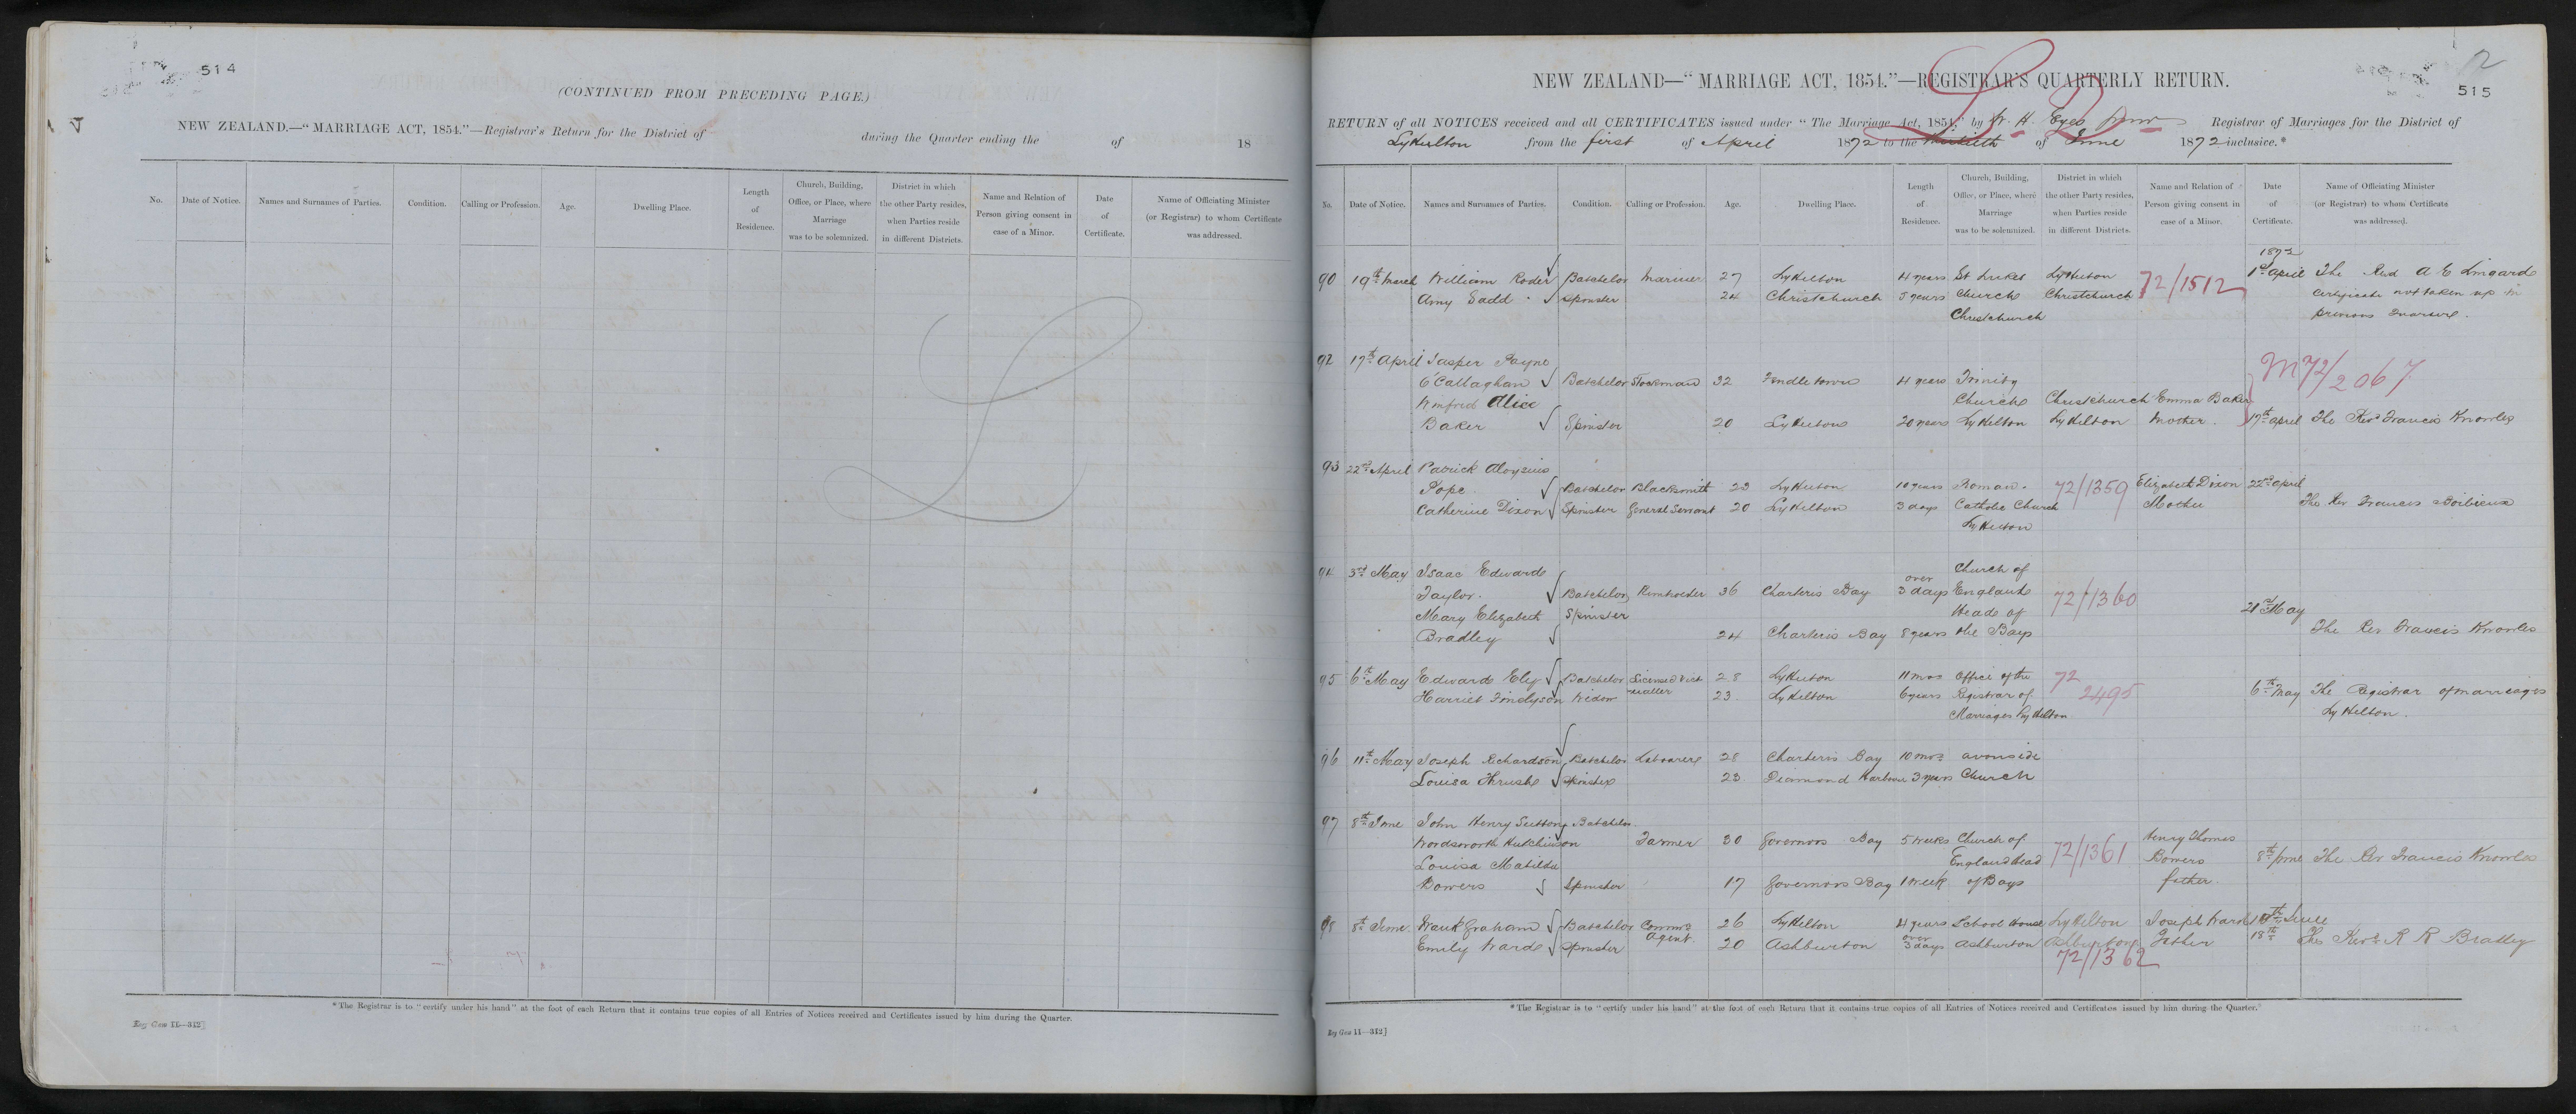 514
(CONTINUED FROM PRECEDING PAGE.)
NEW ZEALAND.—"MARRIAGE ACT, 1854."—Registrar's Return for the District of during the Quarter ending the of 18
No. Date of Notice. Names and Surnames of Parties. Condition. Calling or Profession. Age. Dwelling Place. Length of Residence. Church, Building, Office, or Place, where Marriage was to be solemnized. District in which the other Party resides, when Parties reside in different Districts. Name and Relation of Person giving consent in case of a Minor. Date of Certificate. Name of Officiating Minister (or Registrar) to whom Certificate was addressed.
*The Registrar is to "certify under his hand" at the foot of each Return that it contains true copies of all Entries of Notices received and Certificates issued by him during the Quarter.
Reg Gen 11—312]
515
NEW ZEALAND—"MARRIAGE ACT, 1854."—REGISTRAR'S QUARTERLY RETURN.
RETURN of all NOTICES received and all CERTIFICATES issued under "The Marriage Act, 1854," by W. H. Eyes Registrar of Marriages for the District of
Lyttelton from the first of April 1872 to the thirtieth of June 1872 inclusive.*
No. Date of Notice. Names and Surnames of Parties. Condition. Calling or Profession. Age. Dwelling Place. Length of Residence. Church, Building, Office, or Place, where Marriage was to be solemnized. District in which the other Party resides, when Parties reside in different Districts. Name and Relation of Person giving consent in case of a Minor. Date of Certificate. Name of Officiating Minister (or Registrar) to whom Certificate was addressed.
1872
90 19th March William Roder Batchelor Mariner 27 Lyttelton 4 years St Lukes Lyttelton 72/1512 1st April The Revd A E Lingard
Amy Gadd Spinster 24 Christchurch 5 years Church Christchurch certificate not taken up in
Christchurch previous Quarter.
92 17th April Jasper Payne M72/2067
O'Callaghan Batchelor Stockman 32 Tendletown 4 years Trinity
Winfred Alice Church Christchurch Emma Baker
Baker Spinster 20 Lyttelton 20 years Lyttelton Lyttelton Mother. 17th April The Revd Francis Knowles
93 22nd April Patrick Aloysius
Pope Batchelor Blacksmith 23 Lyttelton 10 years Roman 72/1359 Elizabeth Dixon 22nd April
Catherine Dixon Spinster General Servant 20 Lyttelton 3 days Catholic Church Mother The Rev Francis
Lyttelton
94 3rd May Isaac Edward Church of
Taylor. Batchelor 36 Charteris Bay over 3 days England 72/1360
Mary Elizabeth Spinster Head of 21st May
Bradley 24 Charteris Bay 8 years the Bays The Rev Francis Knowles
95 6th May Edward Ely Batchelor Licensed Victualler 28 Lyttelton 11 mos Office of the 72
Harriet Finelyson Widow 23 Lyttelton 6 years Registrar of 2495 6th May The Registrar of marriages
Marriages Lyttelton Lyttelton.
96 11th May Joseph Richardson Batchelor Labourer 28 Charteris Bay 10 mos Avonside
Louisa Thrush Spinster 23 Diamond Harbour 3 years Church
97 8th June John Henry Sutton Batchelor
Wordsworth Hutchinson Farmer 30 Governors Bay 5 weeks Church of Henry Thomas
Louisa Matilda England Head 72/1361 Bowers 8th June The Rev Francis Knowles
Bowers Spinster 17 Governors Bay 1 week of Bays father.
98 8th June. Frank Graham Batchelor Comms Agent 26 Lyttelton 4 years School House Lyttelton Joseph Ward 18th June
Emily Warde Spinster 20 Ashburton over 3 days Ashburton Ashburton Father 18th The Revd R R Bradley
72/1362
*The Registrar is to "certify under his hand" at the foot of each Return that it contains true copies of all Entries of Notices received and Certificates issued by him during the Quarter.
Reg Gen 11—312]